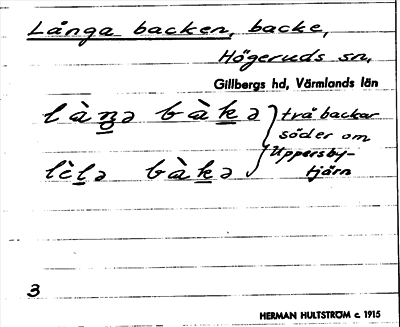 Långa backen, backe,
Högeruds sn,
Gillbergs hd, Värmlands län
làŋ̲ə bàk̲ə } två backar
söder om
Uppersby-
lèl̲ə bàk̲ə tjärn
3
HERMAN HULTSTRÖM c. 1915